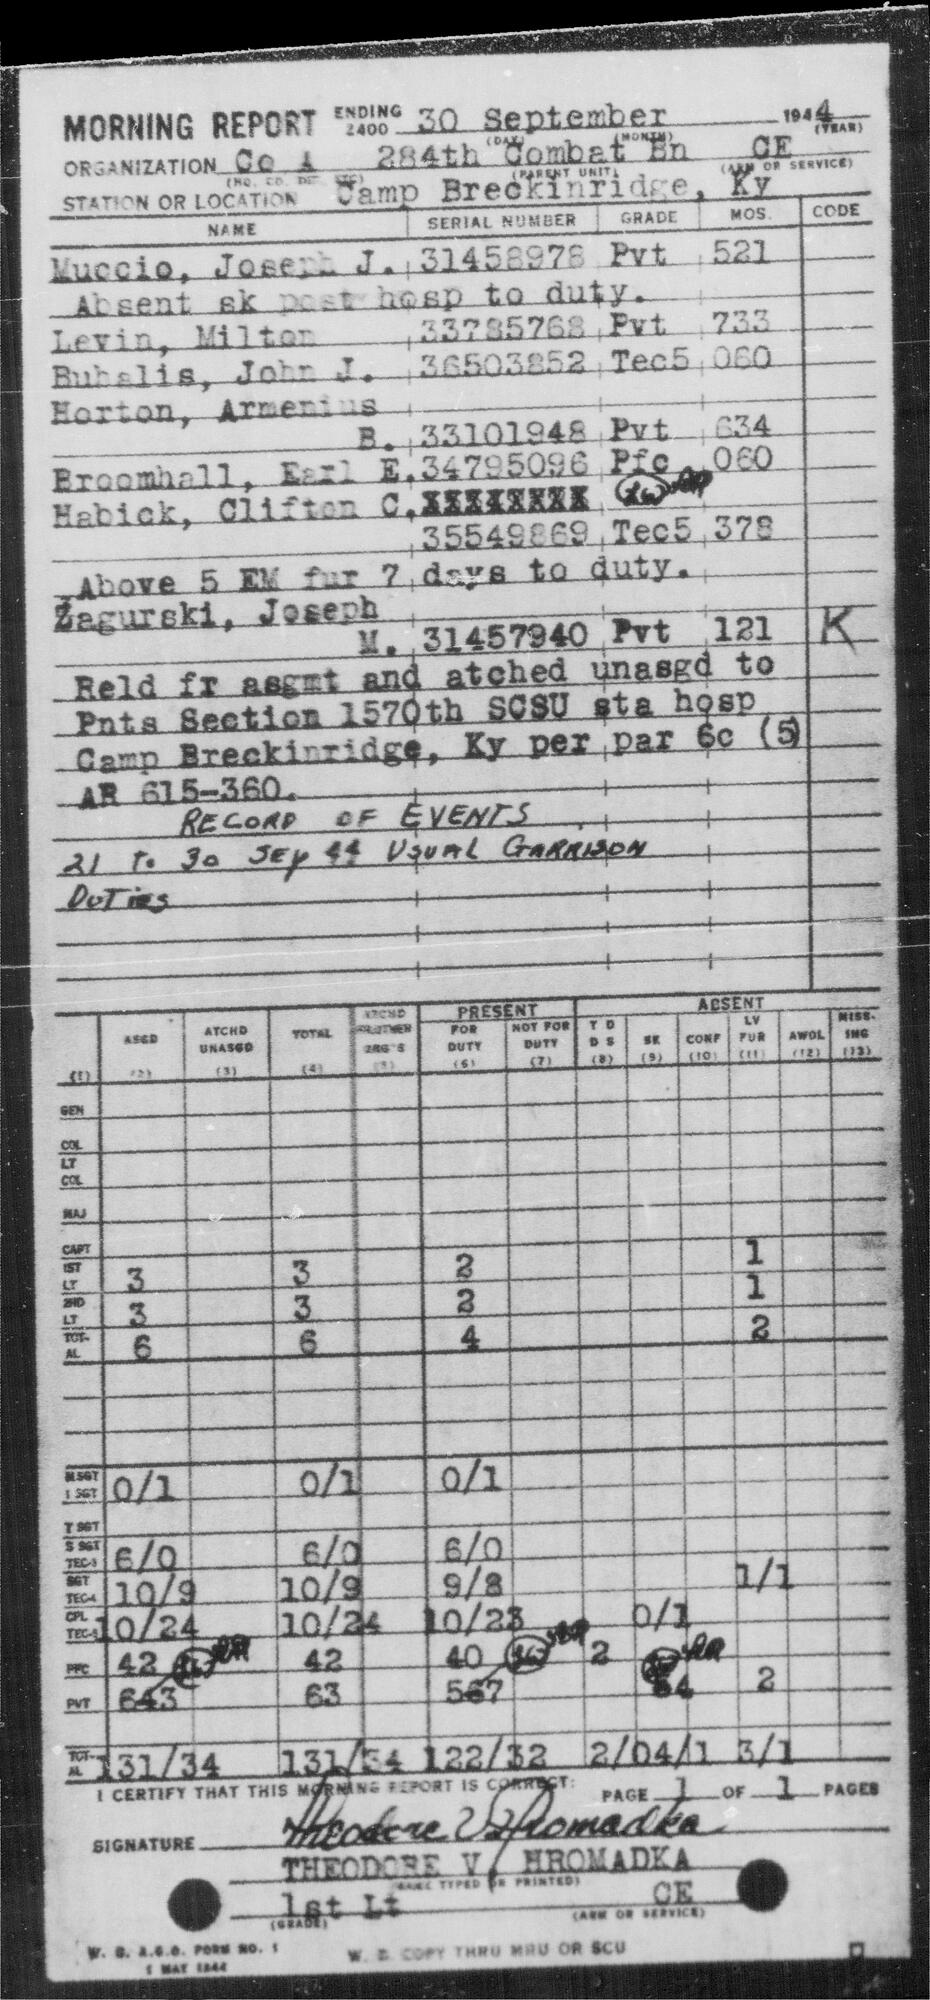 MORNING REPORT ENDING 2400 30 September 1944
(DAY) (MONTH) (YEAR)
ORGANIZATION Co A 284th Combat Bn CE
(NO. CO. DET. ETC) (PARENT UNIT) (ARM OR SERVICE)
STATION OR LOCATION Camp Breckinridge, Ky
NAME SERIAL NUMBER GRADE MOS. CODE
Muccio, Joseph J. 31458978 Pvt 521
Absent sk post hosp to duty.
Levin, Milton 33785768 Pvt 733
Buhalis, John J. 36503852 Tec5 060
Horton, Armenius
B. 33101948 Pvt 634
Broomhall, Earl E. 34795096 Pfc 060
Habick, Clifton C. XXXXXXXX
35549869 Tec5 378
Above 5 EM fur 7 days to duty.
Zagurski, Joseph
M. 31457940 Pvt 121 K
Reld fr asgmt and atched unasgd to
Pnts Section 1570th SCSU sta hosp
Camp Breckinridge, Ky per par 6c (5)
AR 615-360.
RECORD OF EVENTS
21 To 30 SEP 44 USUAL GARRISON
DUTIES
PRESENT ABSENT
ASGD ATCHD UNASGD TOTAL ATCHD FR OTHER ORG'S FOR DUTY NOT FOR DUTY T D D S SK CONF LV FUR AWOL MISSING
(1) (2) (3) (4) (5) (6) (7) (8) (9) (10) (11) (12) (13)
GEN
COL
LT COL
MAJ
CAPT 1
1ST LT 3 3 2 1
2ND LT 3 3 2
TOTAL 6 6 4 2
M SGT 1 SGT 0/1 0/1 0/1
T SGT
S SGT TEC-3 6/0 6/0 6/0
SGT TEC-4 10/9 10/9 9/8 1/1
CPL TEC-5 10/24 10/24 10/23 0/1
PFC 42 42 40 2
PVT 643 63 567 4 2
TOTAL 131/34 131/34 122/32 2/0 4/1 3/1
I CERTIFY THAT THIS MORNING REPORT IS CORRECT: PAGE 1 OF 1 PAGES
SIGNATURE Theodore V Hromadka
THEODORE V. HROMADKA
(NAME TYPED OR PRINTED)
1st Lt CE
(GRADE) (ARM OR SERVICE)
W. D. A.G.O. FORM NO. 1
1 MAY 1944
W. D. COPY THRU MRU OR SCU